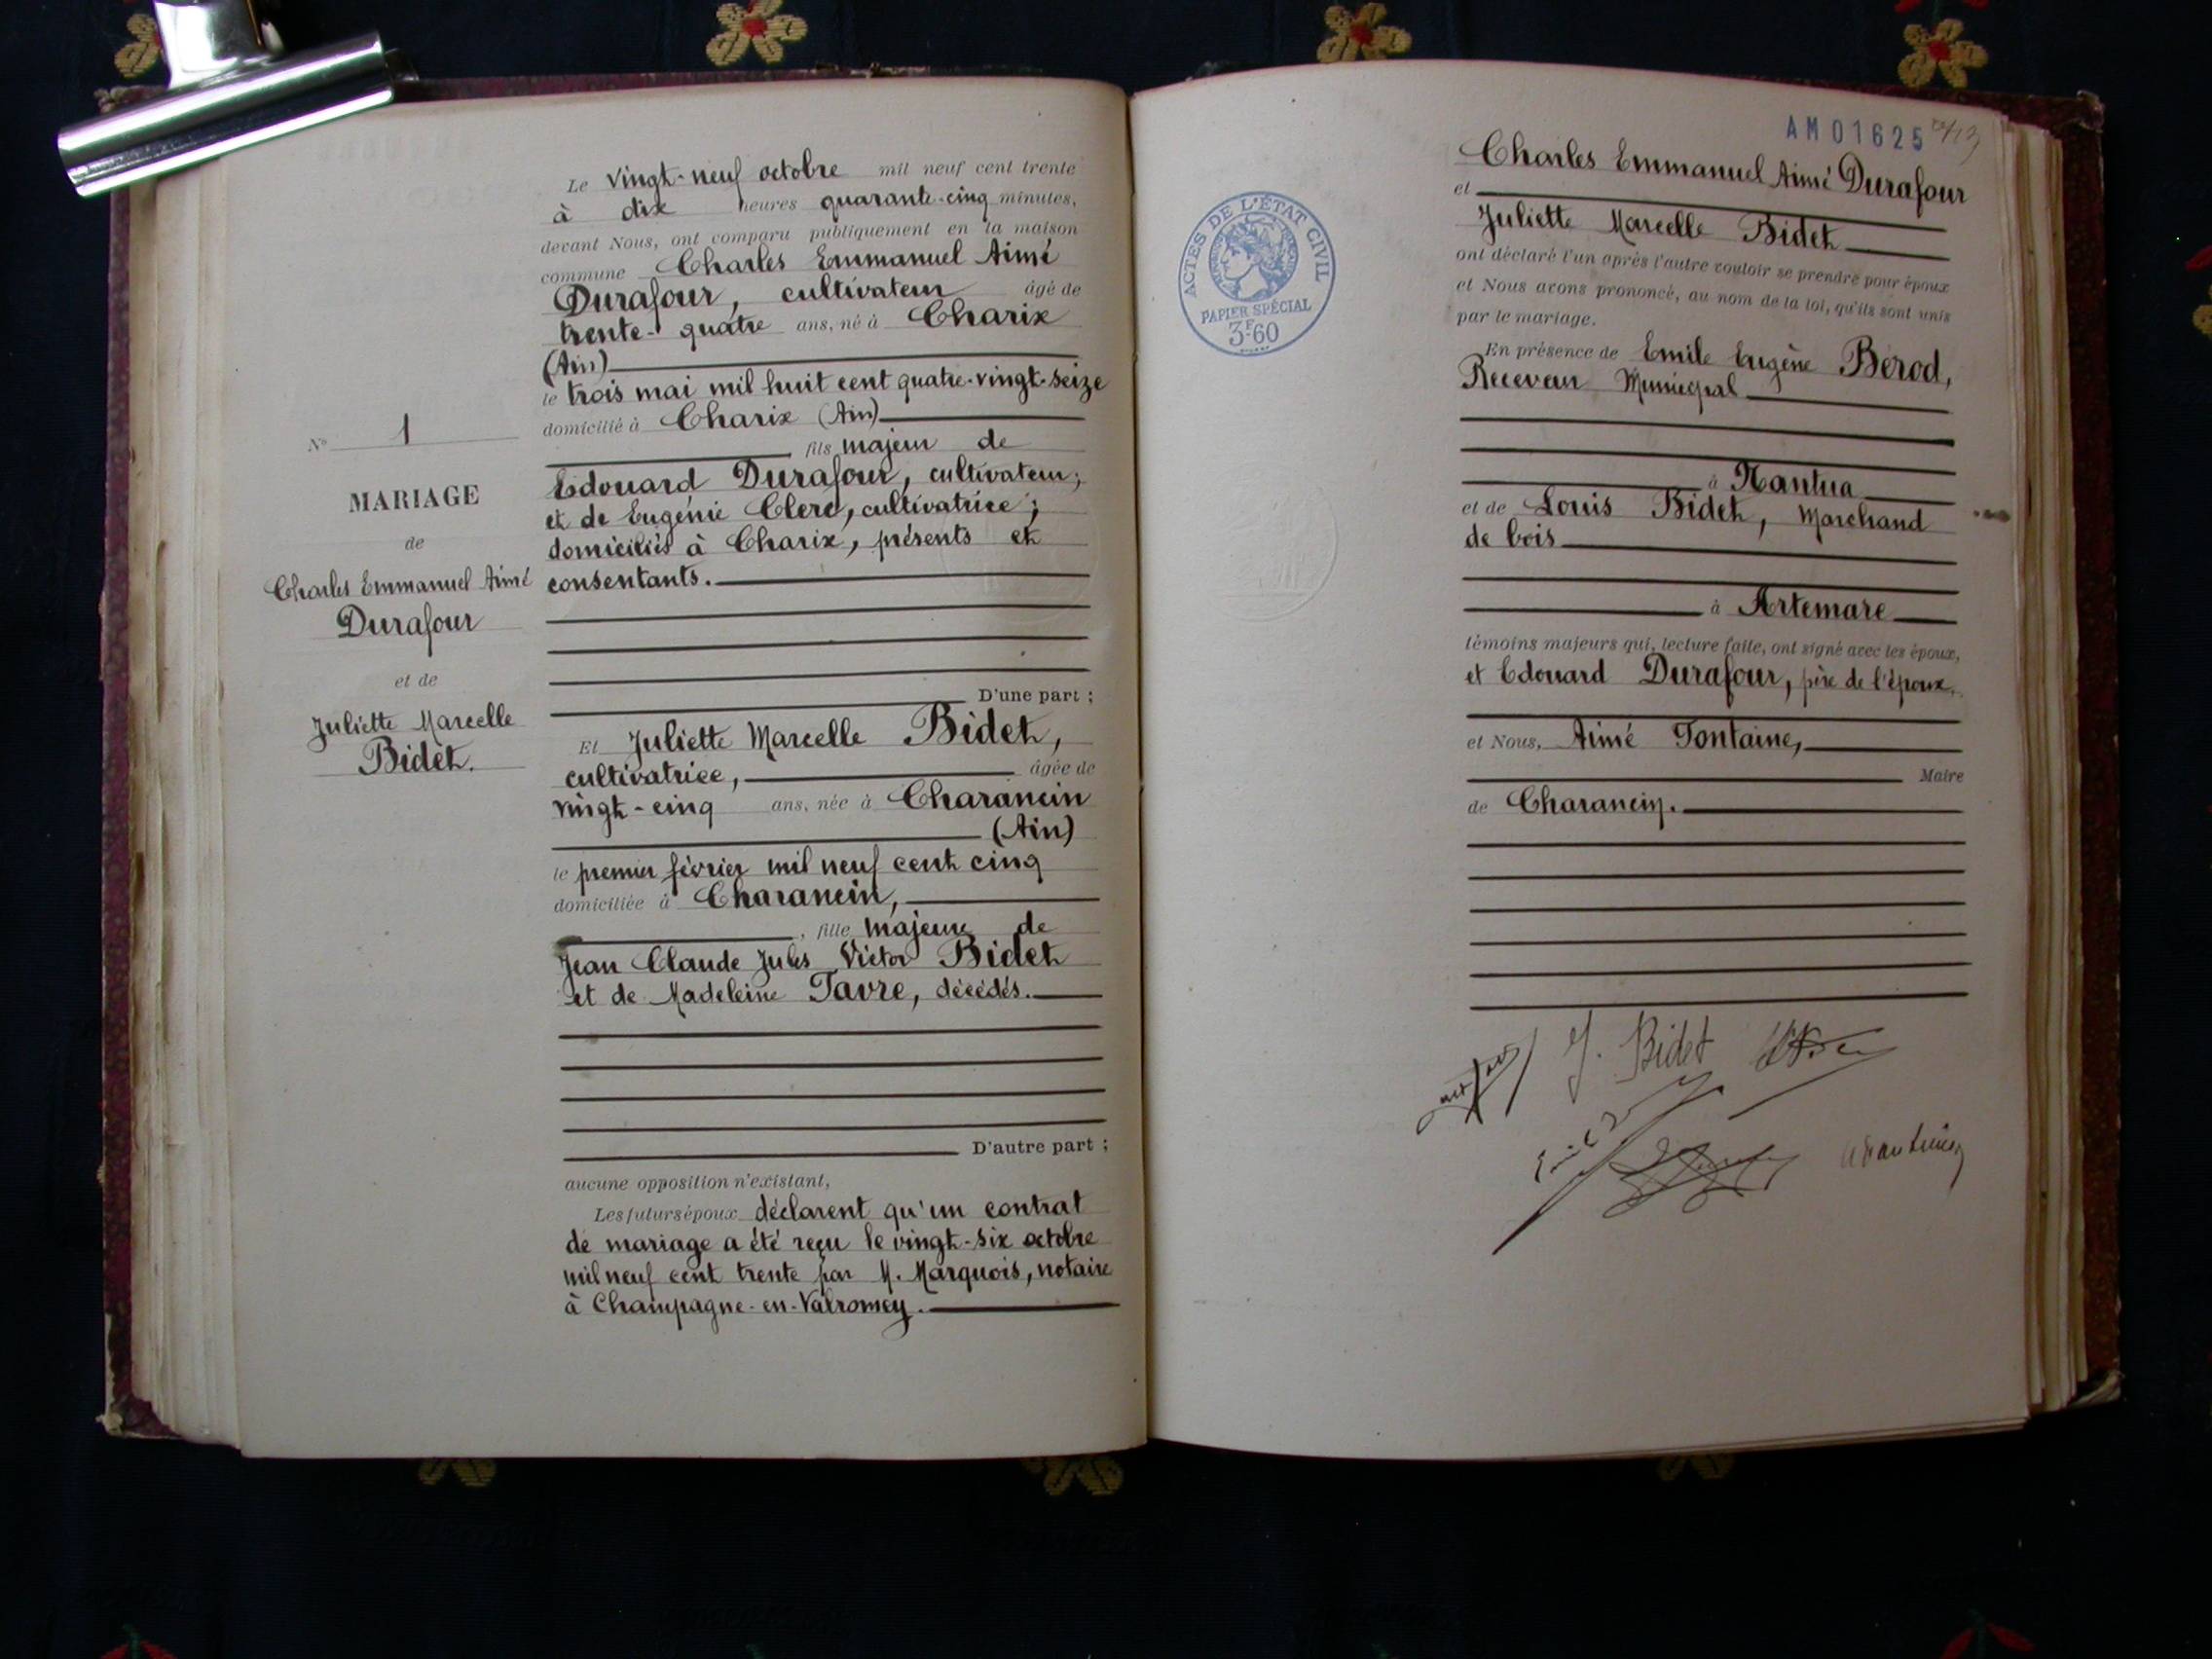 Le vingt-neuf octobre mil neuf cent trente
à dix heures quarante-cinq minutes,
devant Nous, ont comparu publiquement en la maison
commune Charles Emmanuel Aimé
Durafour, cultivateur âgé de
trente-quatre ans, né à Charix
(Ain)
le trois mai mil huit cent quatre-vingt-seize
domicilié à Charix (Ain)
fils majeur de
Edouard Durafour, cultivateur;
et de Eugénie Clerc, cultivatrice;
domiciliés à Charix, présents et
consentants.
D'une part ;
Et Juliette Marcelle Bidet,
cultivatrice, âgée de
vingt-cinq ans, née à Charancin
(Ain)
le premier février mil neuf cent cinq
domiciliée à Charancin,
, fille majeure de
Jean Claude Jules Victor Bidet
et de Madeleine Favre, décédés.
D'autre part ;
aucune opposition n'existant,
Les futurs époux déclarent qu'un contrat
de mariage a été reçu le vingt-six octobre
mil neuf cent trente par M. Marquois, notaire
à Champagne-en-Valromey.
N° 1
MARIAGE
de
Charles Emmanuel Aimé
Durafour
et de
Juliette Marcelle
Bidet.
ACTES DE L'ÉTAT CIVIL
PAPIER SPÉCIAL
3F60
AM01625
Charles Emmanuel Aimé Durafour
et
Juliette Marcelle Bidet
ont déclaré l'un après l'autre vouloir se prendre pour époux
et Nous avons prononcé, au nom de la loi, qu'ils sont unis
par le mariage.
En présence de Emile Eugène Berod,
Receveur Municipal
à Nantua
et de Louis Bidet, Marchand
de bois
à Artemare
témoins majeurs qui, lecture faite, ont signé avec les époux,
et Edouard Durafour, père de l'époux.
et Nous, Aimé Fontaine,
Maire
de Charancin.
J. Bidet